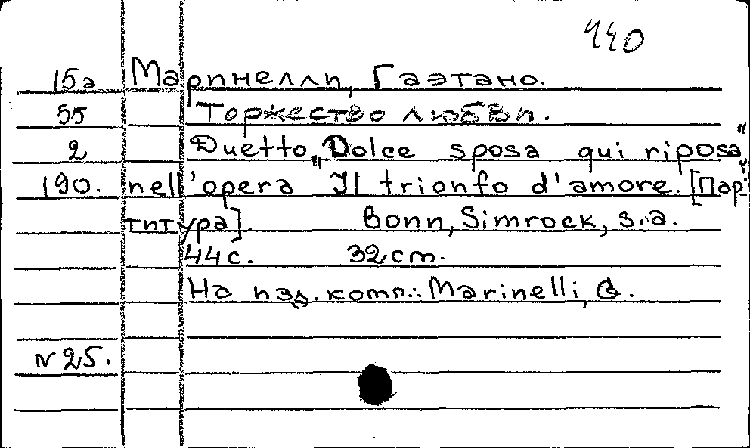 440
15а Маринелли, Гаэтано.
55 Торжество любви.
2 Duetto „Dolce sposa qui riposa"
190. nell'opera Il trionfo d'amore. [Пар-
титура]. Bonn, Simrock, s.a.
44 с. 32 cm.
На изд. комп.: Marinelli, G.
N 25.